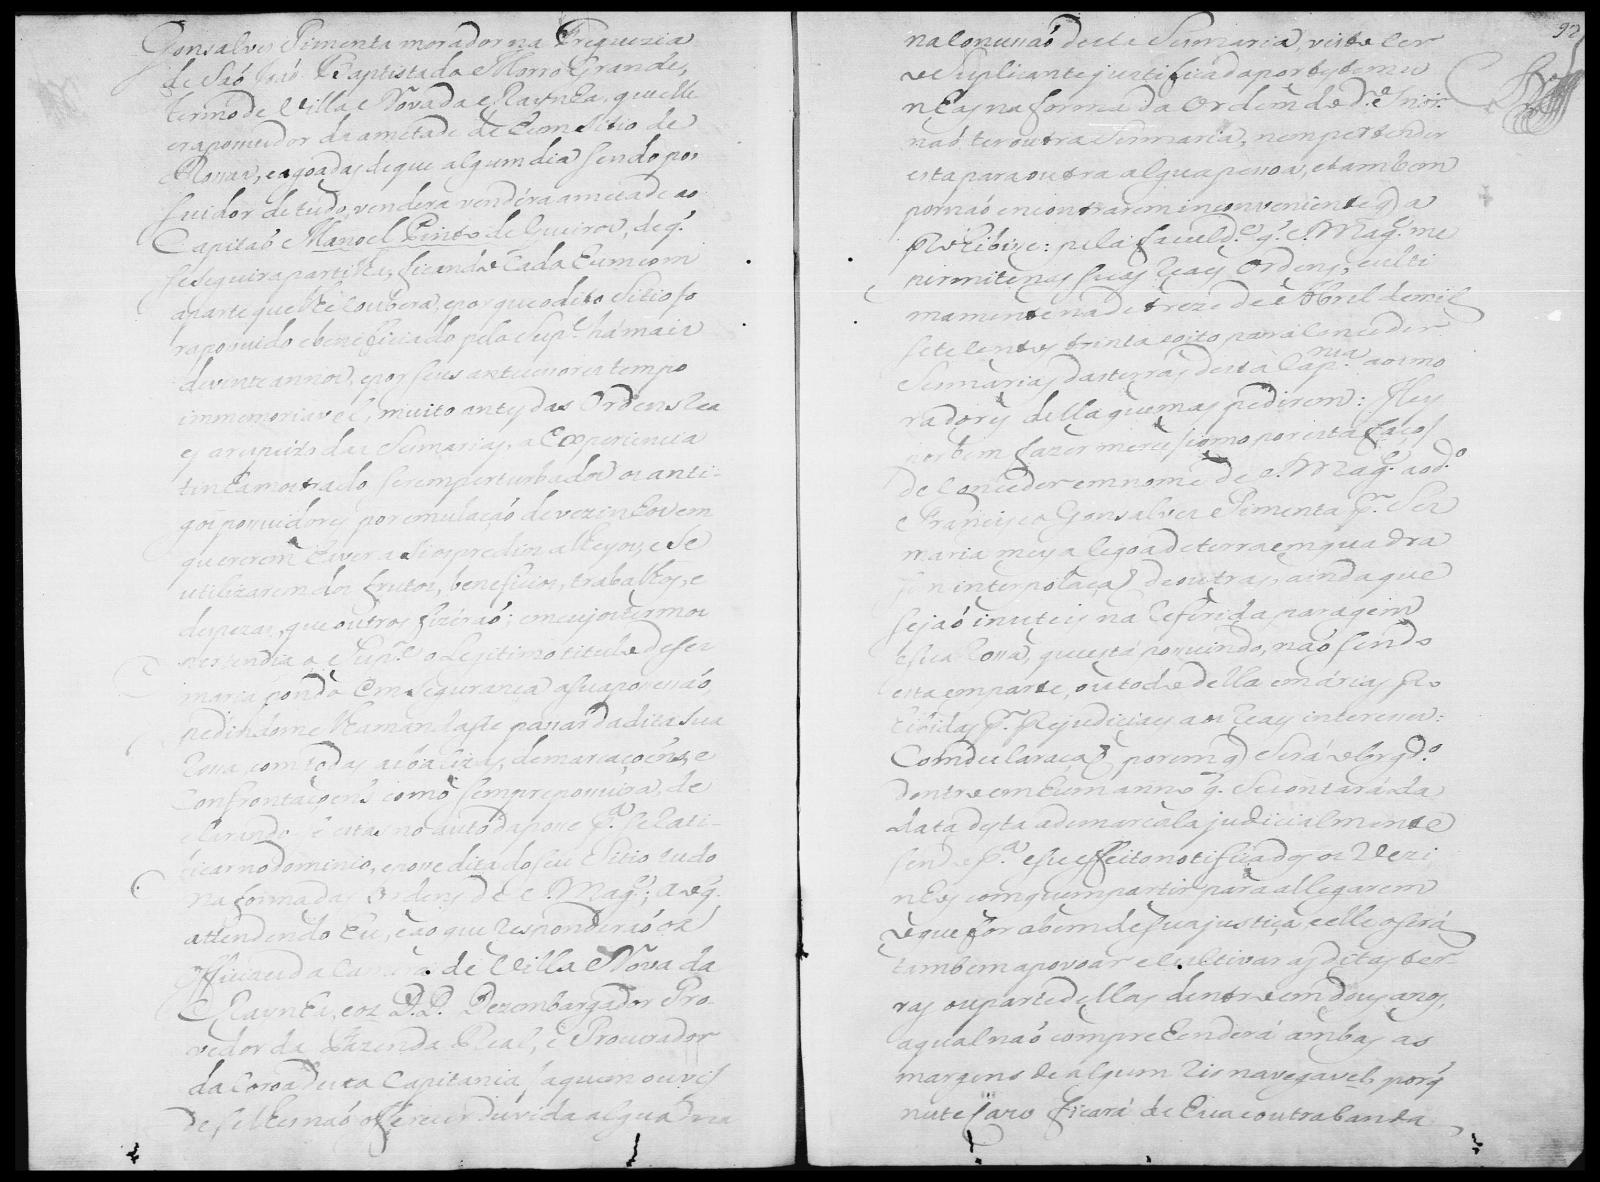 Gonsalves Pimenta morador na Freguezia
de Saó Joaó Baptista do Morro Grande,
termo de Villa Nova da Raynha, que elle
era pouuidor da ametade de hum Sitio de
Rossas, e agoadas de que algum dia sendo pos
suidor de tudo, vendera vendéra ametade ao
Capitaó Manoel Pinto de Queiros, de q.
se seguira partilha, ficando cada hum com
a parte que lhe coubera, e por que o dito Sitio fo
ra possuido e beneficiado pelo Sup.e há mais
de vinte annos, e por seus antecessores tempo
immemoriavel, muito antes das Ordens Rea
es a respeito das Sesmarias, a Experiencia
tinha mostrado serem perturbados os anti-
gos possuidores por emulaçaó de vezinhos em
quererem haver a si os predios alheyos, e se
utilizarem dos frutos, beneficios, trabalhos, e
despezas, que outros fizéraó; em cujos termos
pertendia o Sup.e o Legitimo titulo de Ses
maria pondo em segurança a sua possessaó,
pedindome lha mandasse passar da dita sua
Rossa com todas as balizas, demarcaçoens, e
Confrontaçoens como sempre possuira, de
clarando estas no auto da posse p.a se rati-
ficar no dominio, e posse dita do seu Sitio tudo
na forma das Ordens de S. Mag.e; ao q.
attendendo Eu, e ao que responderaó os
Officiaes da Camera de Villa Nova da
Raynha, e os D.D. Dezembargador Pro-
vedor da Fazenda Real, e Procurador
da Coroa desta Capitania (a quem ouvi)
de se lhes naó offerecer duvida algua na
92
na Concessaó desta Sesmaria, visto ter
o Suplicante justificado por testemu
nhas na forma da Ordem do d.o Snór
naó ter outra Sesmaria, nem pertender
esta para outra algua pessoa, e tambem
por naó encontrarem inconveniente q. a
prohibisse: pela faculd.e q. S. Mag.e me
permite nas suas Reaes Ordens, e ulti
mamente na de treze de Abril de mil
sete centos trinta e oito para Conceder
Sesmarias das terras desta Capitania aos mo
radores della que mas pedirem: Hey
por bem fazer merce (como por esta faço)
de Conceder em nome de S. Mag.e ao d.o
Francisco Gonsalves Pimenta p.r Ses
maria meya legoa de terra em quadra
sem interpolaçaó de outras, ainda que
sejaó inuteis na referida paragem
e sua Rossa, que está possuindo, naó sendo
esta em parte, ou todo della em árias pro
hibidas p.r prejudiciaes aos Reaes interesses:
Com declaraçaó porem q. Será obrig.do
dentro em hum anno q. se contará da
data desta a demarcala judicialmente
sendo p.a esse effeito notificados os Vezi
nhos com quem partir para allegarem
o que for a bem de sua justiça e elle o será
tambem a povoar e Cultivar as ditas ter-
ras ou parte dellas dentro em dous anos,
a qual naó comprehenderá ambas as
margens de algum rio navegavel, porq.
neste Cazo ficará de hua e outra banda